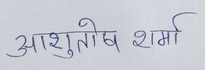 आशुतोष शर्मा